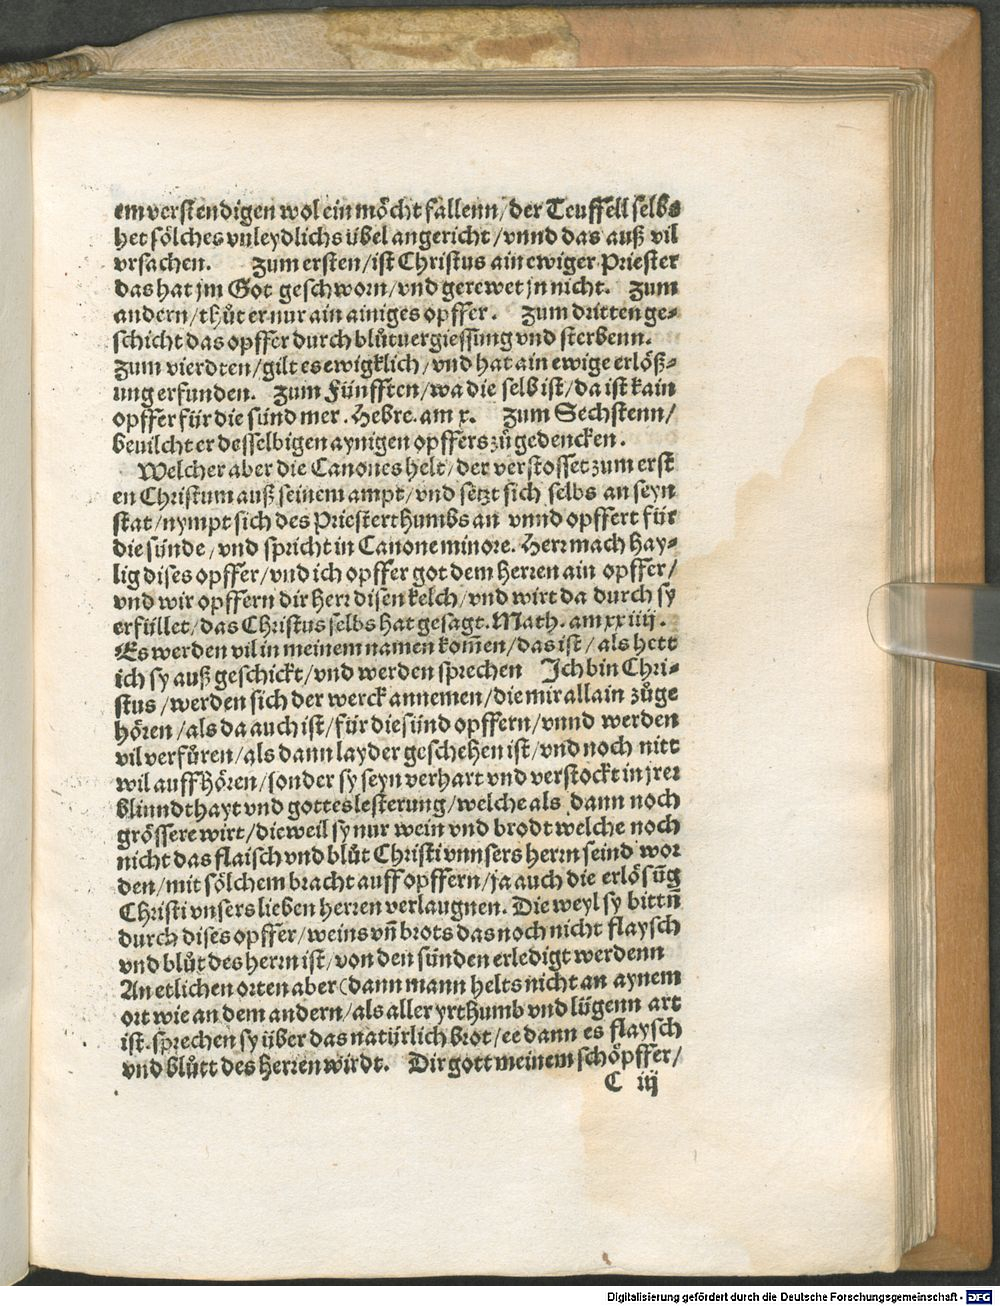 em verstendigen wol ein möcht fallenn/der Teuffell selbs
het sölches vnleydlichs übel angericht/vnnd das auß vil
vrsachen. Zum ersten/ist Christus ain ewiger Priester
das hat jm Got geschworn/vnd gerewet jn nicht. Zum
andern/thůt er nur ain ainiges opffer. Zum dritten ge⸗
schicht das opffer durch blůtuergiessung vnd sterbenn.
Zum vierdten/gilt es ewigklich/vnd hat ain ewige erlöß⸗
ung erfunden. Zum Fünfften/wa die selb ist/da ist kain
opffer für die sünd mer. Hebre. am x. Zum Sechstenn/
beuilcht er desselbigen aynigen opffers zů gedencken.
Welcher aber die Canones helt/der verstosset zum erst
en Christum auß seinem ampt/vnd setzt sich selbs an seyn
stat/nympt sich des Priesterthumbs an vnnd opffert für
die sünde/vnd spricht in Canone minore. Herr mach hay⸗
lig dises opffer/vnd ich opffer got dem herren ain opffer/
vnd wir opffern dir herr disen kelch/vnd wirt da durch sy
erfüllet/das Christus selbs hat gesagt. Math. am xxiiij.
Es werden vil in meinem namen kom̄en/das ist/als hett
ich sy auß geschickt/vnd werden sprechen Ich bin Chri⸗
stus/werden sich der werck annemen/die mir allain zůge
hören/als da auch ist/für die sünd opffern/vnnd werden
vil verfůren/als dann layder geschehen ist/vnd noch nitt
wil auffhören/sonder sy seyn verhart vnd verstockt in jrer
blinndthayt vnd gotteslesterung/welche als dann noch
grössere wirt/die weil sy nur wein vnd brodt welche noch
nicht das flaisch vnd blůt Christi vnnsers herrn seind wor
den/mit sölchem bracht auff opffern/ja auch die erlösūg
Christi vnsers lieben herren verlaugnen. Die weyl sy bittn̄
durch dises opffer/weins vn̄ brots das noch nicht flaysch
vnd blůt des herrn ist/von den sünden erledigt werdenn
An etlichen orten aber (dann mann helts nicht an aynem
ort wie an dem andern/als aller yrthumb vnd lügenn art
ist. sprechen sy über das natürlich brot/ee dann es flaysch
vnd blůtt des herren wirdt. Dir gott meinem schöpffer/
C iij
Digitalisierung gefördert durch die Deutsche Forschungsgemeinschaft - DFG